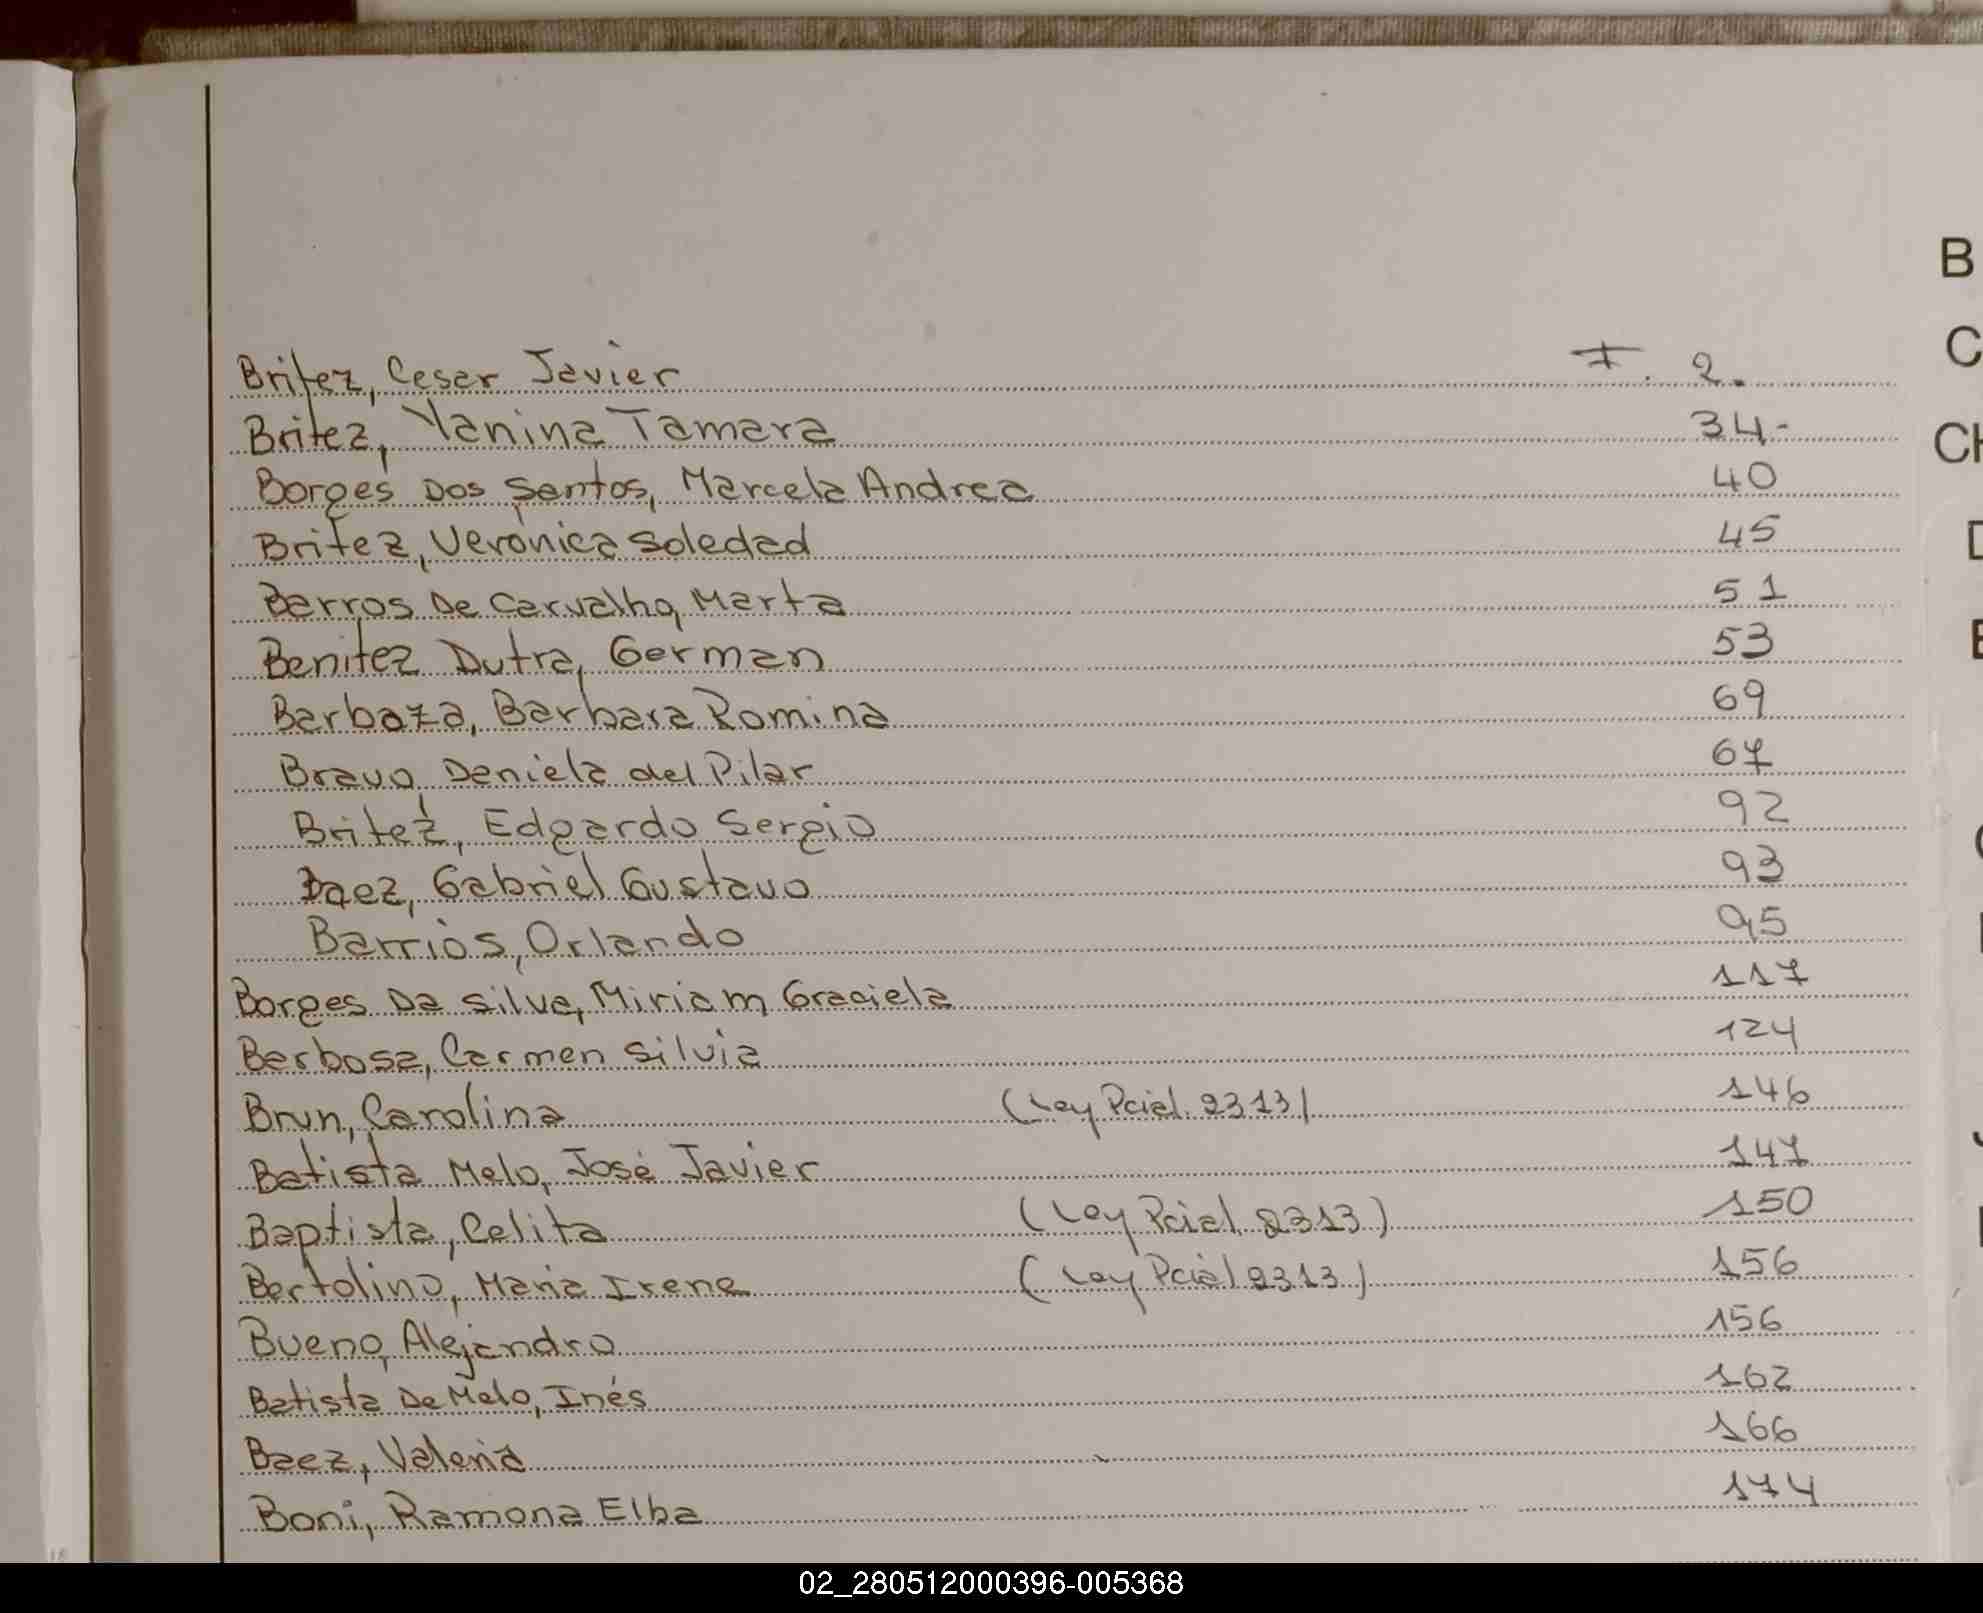 Britez, Cesar Javier F. 2.
Britez, Yanina Tamara 34-
Borges Dos Santos, Marcela Andrea 40
Britez, Verónica Soledad 45
Barros De Carvalho, Marta 51
Benitez Dutra, German 53
Barboza, Barbara Romina 69
Bravo, Daniela del Pilar 67
Britez, Edgardo Sergio 92
Baez, Gabriel Gustavo 93
Barrios, Orlando 95
Borges Da Silva, Miriam Graciela 117
Barbosa, Carmen Silvia 124
Brun, Carolina (Ley Pcial. 2313) 146
Batista Melo, José Javier 147
Baptista, Celita (Ley Pcial. 2313) 150
Bertolino, Maria Irene (Ley Pcial 2313) 156
Bueno, Alejandro 156
Batista De Melo, Inés 162
Baez, Valeria 166
Boni, Ramona Elba 174
B
C
CH
D
E
02_280512000396-005368